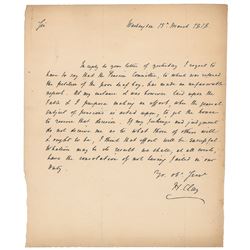 Sir
Washington 15th March 1818.
In reply to your letter of yesterday I regret to
have to say that the Pension Committee, to which was referred
the petition of the poor deaf boy, has made an unfavorable
report. At my instance it was however laid upon the
Table & I purpose making an effort, when the general
subject of pensions is acted upon, to get the house
to reverse that decision. If my feelings and judgment
do not deceive me as to what those of others will
& ought to be, I think that effort will be successful
Whatever may be its result we shall, at all events,
have the consolation of not having failed in our
duty.
Yr. ob. Serv
H. Clay